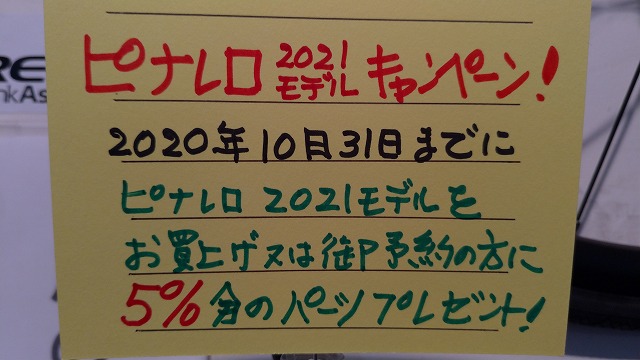 RE
nkAs
ピナレロ 2021モデル キャンペーン!
2020年10月31日までに
ピナレロ 2021モデルを
お買上げ又は御予約の方に
5%分のパーツプレゼント!